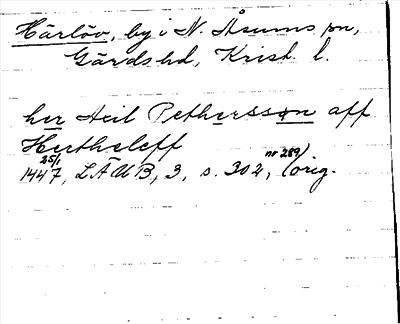 Härlöv, by i N. Åsums sn,
Gärds hd, Krist. l.
her Heil Pethersson aff
Hertheleff
25/1 1447, LÄUB, 3, s. 302, nr 289, (orig.